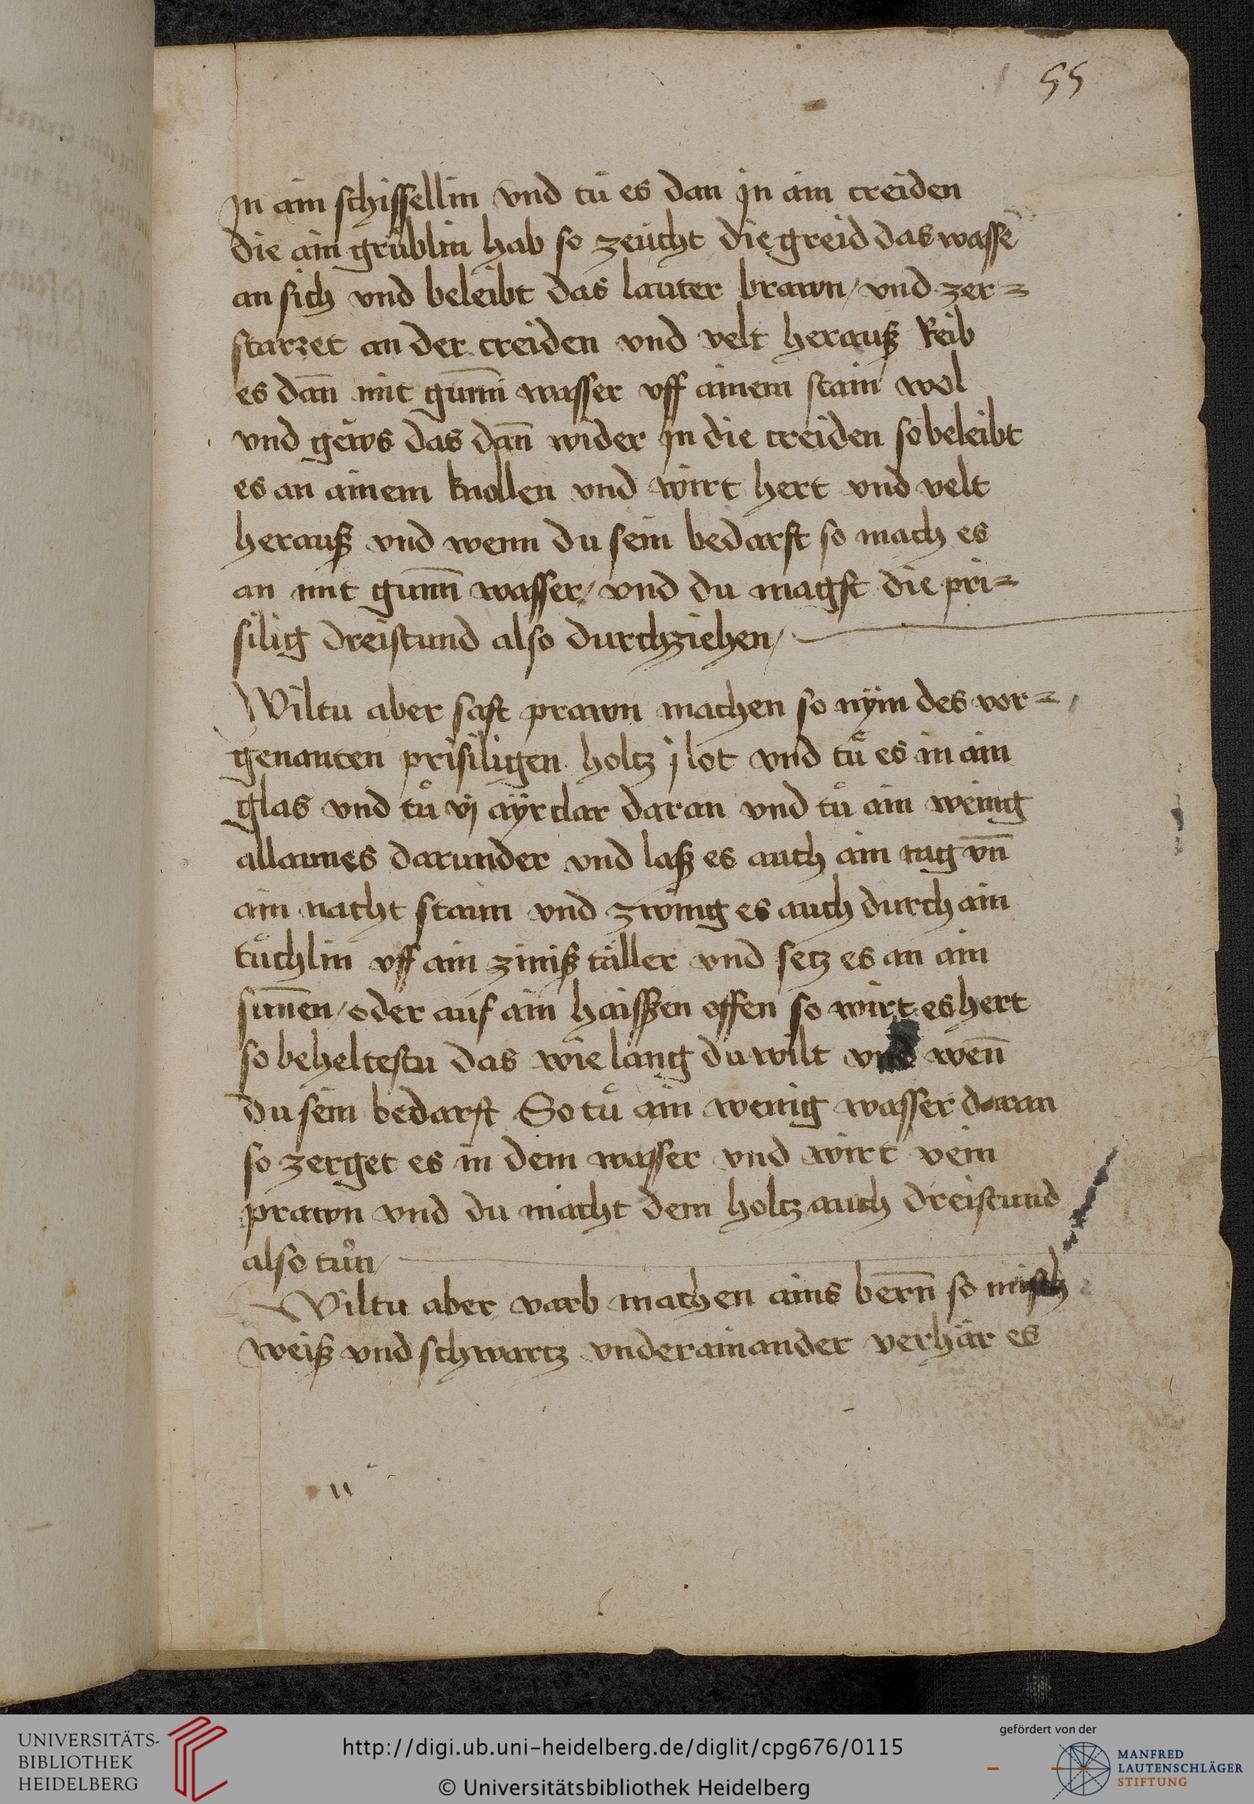 55
Jn ain schissellin vnd tuͤ es dan Jn ain creiden
die ain gruͤblin hab so zeucht die greid das wasser
an sich vnd beleibt das lauter brawn / vnd zer=
starzet an der creiden vnd velt herauß Reib
es dañ mit gum̄i wasser vff ainem stain wol
vnd gews das dañ wider Jn die creiden so beleibt
es an ainem knollen vnd wirt hert vnd velt
herauß vnd wenn du sein bedarft so mach es
an mit gum̄i wasser / vnd du magst die pri=
silig dreistund also durchziehen /
Wiltu aber saft prawn machen so nym des vor=
genanten prisiligen holtz j lot vnd tuͤ es in ain
glas vnd tuͦ vj ayrclar daran vnd tuͦ ain wenig
allaunes darunder vnd laß es auch ain tag vn̄
ain nacht stann vnd zwing es auch durch ain
tuͤchlin vff ain ziniß täller vnd setz es an ain
sun̄en / oder auf ain haissen offen so wirt es hert
so beheltestu das wie lang du wilt vnd wen̄
du sein bedarft So tuͦ ain wenig wasser daran
so zerget es in dem wasser vnd wirt vein
prawn vnd du macht dem holtz auch dreistund
also tuͦn /
Wiltu aber varb machen ains bern̄ so misch
weiß vnd schwartz vnderainander verhär es
UNIVERSITÄTS-
BIBLIOTHEK
HEIDELBERG
http://digi.ub.uni-heidelberg.de/diglit/cpg676/0115
© Universitätsbibliothek Heidelberg
gefördert von der
MANFRED
LAUTENSCHLÄGER
STIFTUNG